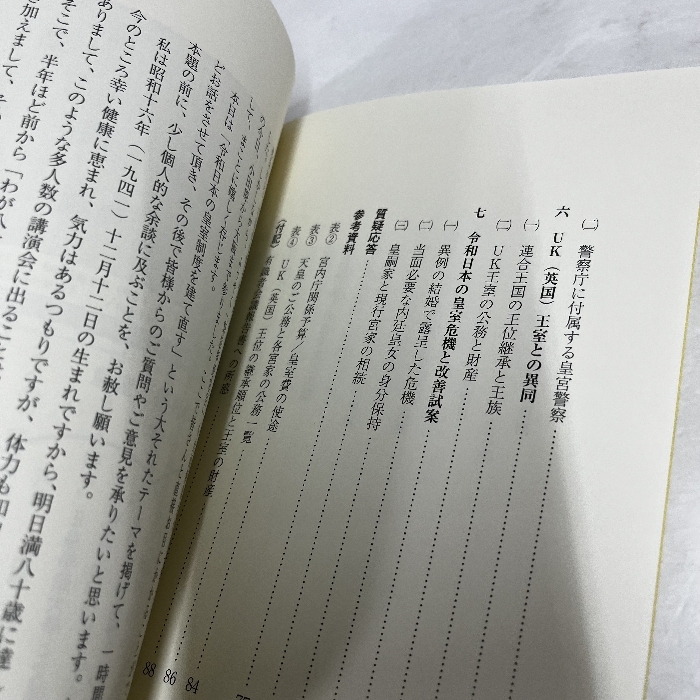 ㈡ 警察庁に付属する皇宮警察
六 UK（英国）王室との異同
㈠ 連合王国の王位継承と王族
㈡ UK王室の公務と財産
七 令和日本の皇室危機と改善試案
㈠ 異例の結婚で露呈した危機
㈡ 当面必要な内廷皇女の身分保持
㈢ 皇嗣家と現行宮家の相続
質疑応答
参考資料
表② 宮内庁関係予算／皇室費の使途
表③ 天皇のご公務と各宮家の公務一覧
表④ UK（英国）王位の継承順位と王室の財産
〈付記〉有識者会議報告書への所感
84
86
88
本日は「令和日本の皇室制度を建て直す」という大それたテーマを掲げて、一時間
どお話をさせて頂き、その後で皆様からのご質問やご意見を承りたいと思います。
本題の前に、少し個人的な余談に及ぶことを、お赦し願います。
私は昭和十六年（一九四一）十二月十二日の生まれですから、明日満八十歳に達
今のところ幸い健康に恵まれ、気力はあるつもりですが、体力も
ありまして、このような多人数の講演会に出ること
そこで、半年ほど前から「わが
加えまして、